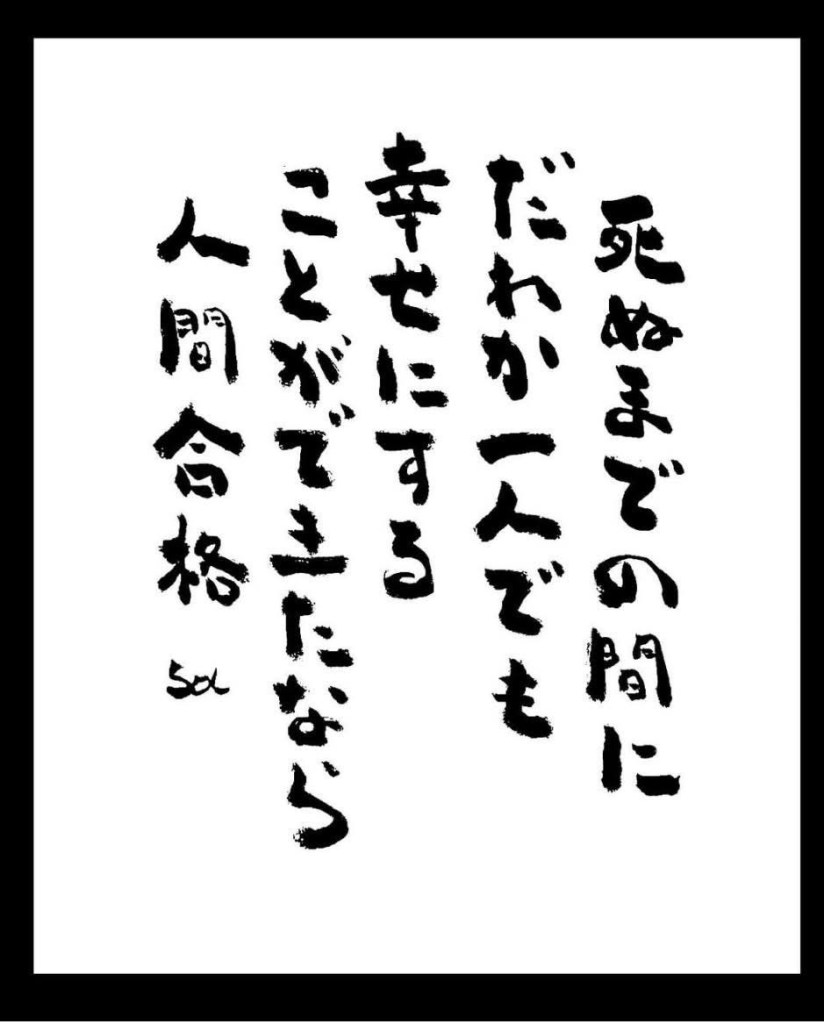 死ぬまでの間に
だれか一人でも
幸せにする
ことができたなら
人間合格